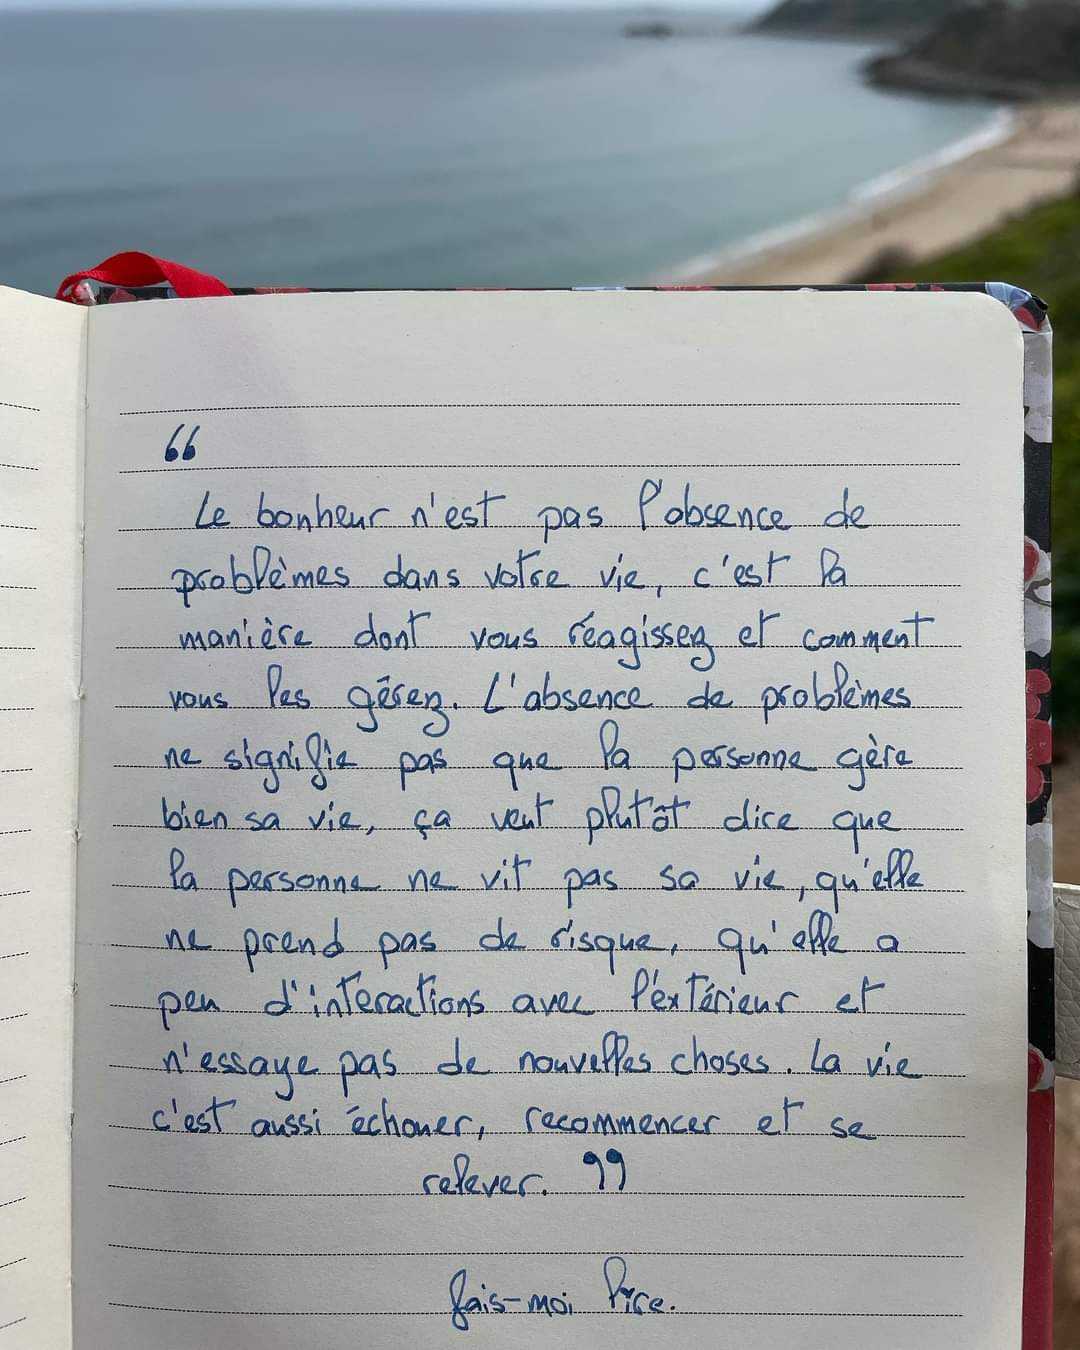 “
Le bonheur n'est pas l'absence de
problèmes dans votre vie, c'est la
manière dont vous réagissez et comment
vous les gérez. L'absence de problèmes
ne signifie pas que la personne gère
bien sa vie, ça veut plutôt dire que
la personne ne vit pas sa vie, qu'elle
ne prend pas de risque, qu'elle a
peu d'interactions avec l'extérieur et
n'essaye pas de nouvelles choses. La vie
c'est aussi échouer, recommencer et se
relever. ”
fais-moi lire.